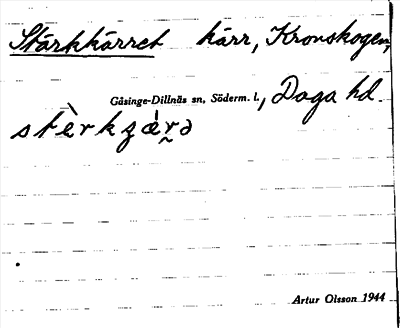 Stärkkärret kärr, Kronskogen,
Gåsinge-Dillnäs sn, Söderm. l., Daga hd.
stèrkzàr̰ə
Artur Olsson 1944